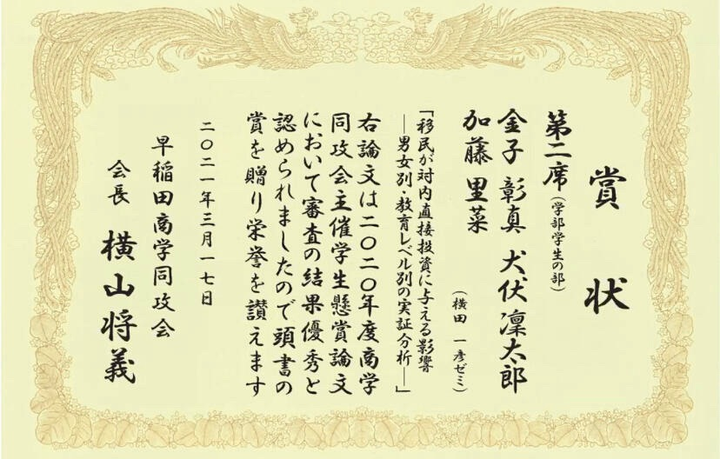 賞状
第二席(学部学生の部)
金子 彰真 犬伏凜太郎
加藤 里菜
(横田 一彦ゼミ)
「移民が対内直接投資に与える影響
―男女別・教育レベル別の実証分析―」
右論文は二〇二〇年度商学
同攻会主催学生懸賞論文
において審査の結果優秀と
認められましたので頭書の
賞を贈り栄誉を讃えます
二〇二一年三月一七日
早稲田商学同攻会
会長 横山将義